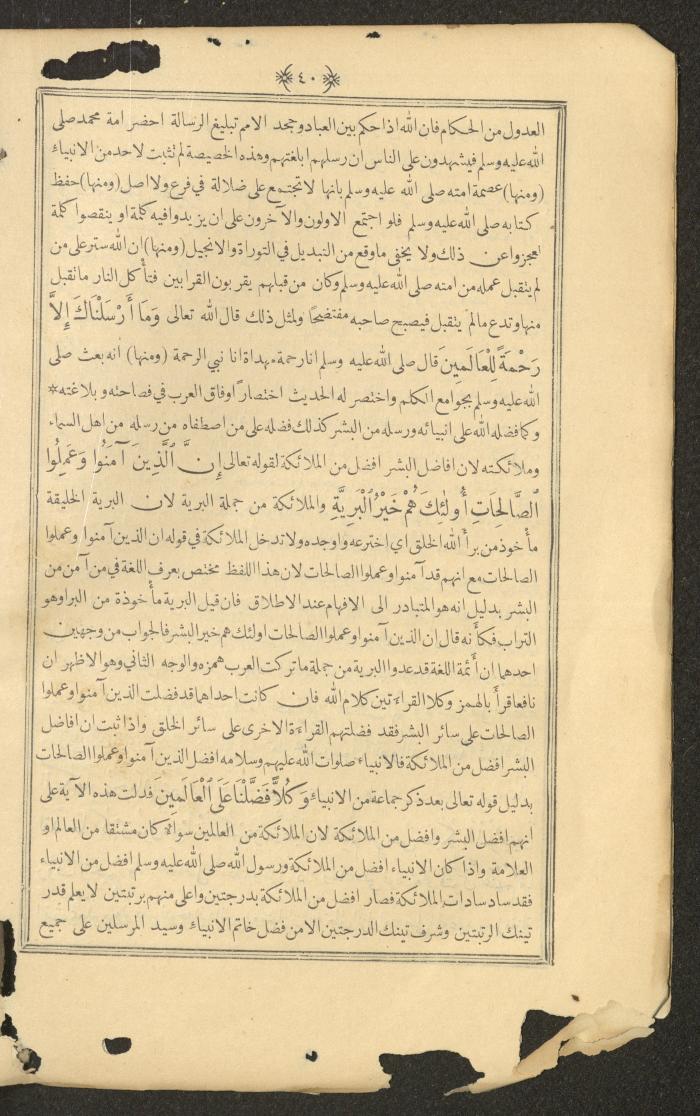 ٤٠
العدول من الحكام فان الله اذا حكم بين العباد وجحد الامم تبليغ الرسالة احضر امة محمد صلى
الله عليه وسلم فيشهدون على الناس ان رسلهم ابلغتهم وهذه الخصيصة لم تثبت لاحد من الانبياء
(ومنها) عصمة امته صلى الله عليه وسلم بانها لا تجتمع على ضلالة في فرع ولا اصل (ومنها) حفظ
كتابه صلى الله عليه وسلم فلو اجتمع الاولون والآخرون على ان يزيدوا فيه كلمة او ينقصوا كلمة
لعجزوا عن ذلك ولا يخفى ما وقع من التبديل في التوراة والانجيل (ومنها) ان الله ستر على من
لم يتقبل عمله من امته صلى الله عليه وسلم وكان من قبلهم يقربون القرابين فتأكل النار ما تقبل
منها وتدع ما لم يتقبل فيصبح صاحبه مفتضحًا ولمثل ذلك قال الله تعالى وَمَا أَرْسَلْنَاكَ إِلَّا
رَحْمَةً لِلْعَالَمِينَ قال صلى الله عليه وسلم انا رحمة مهداة انا نبي الرحمة (ومنها) أنه بعث صلى
الله عليه وسلم بجوامع الكلم واختصر له الحديث اختصارًا وفاق العرب في فصاحته وبلاغته *
وكما فضله الله على انبيائه ورسله من البشر كذلك فضله على من اصطفاه من رسله من اهل السماء
وملائكته لان افاضل البشر افضل من الملائكة لقوله تعالى إِنَّ ٱلَّذِينَ آمَنُوا وَعَمِلُوا
ٱلصَّالِحَاتِ أُولٰئِكَ هُمْ خَيْرُ ٱلْبَرِيَّةِ والملائكة من جملة البرية لان البرية الخليقة
مأخوذ من برأ الله الخلق اي اخترعه واوجده ولا تدخل الملائكة في قوله ان الذين آمنوا وعملوا
الصالحات مع انهم قد آمنوا وعملوا الصالحات لان هذا اللفظ مختص بعرف اللغة في من آمن من
البشر بدليل انه هو المتبادر الى الافهام عند الاطلاق فان قيل البرية مأخوذة من البرا وهو
التراب فكأنه قال ان الذين آمنوا وعملوا الصالحات اولئك هم خير البشر فالجواب من وجهين
احدهما ان أئمة اللغة قد عدوا البرية من جملة ما تركت العرب همزه والوجه الثاني وهو الاظهر ان
نافعا قرأ بالهمز وكلا القراءتين كلام الله فان كانت احداهما قد فضلت الذين آمنوا وعملوا
الصالحات على سائر البشر فقد فضلتهم القراءة الاخرى على سائر الخلق واذا ثبت ان افاضل
البشر افضل من الملائكة فالانبياء صلوات الله عليهم وسلامه افضل الذين آمنوا وعملوا الصالحات
بدليل قوله تعالى بعد ذكر جماعة من الانبياء وَكُلًّا فَضَّلْنَا عَلَى ٱلْعَالَمِينَ فدلت هذه الآية على
انهم افضل البشر وافضل من الملائكة لان الملائكة من العالمين سواء كان مشتقا من العالم او
العلامة واذا كان الانبياء افضل من الملائكة ورسول الله صلى الله عليه وسلم افضل من الانبياء
فقد ساد سادات الملائكة فصار افضل من الملائكة بدرجتين واعلى منهم برتبتين لا يعلم قدر
تينك الرتبتين وشرف تينك الدرجتين الا من فضل خاتم الانبياء وسيد المرسلين على جميع